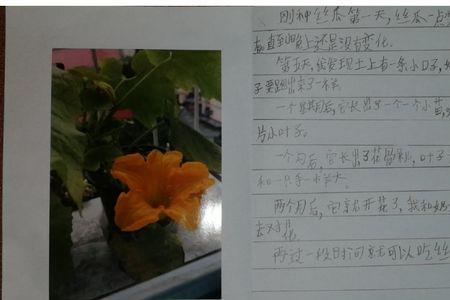 刚种丝瓜第一天,丝瓜一点
直到晚上还是没有变化.
第五天,我发现土上有一条小口子,
子要跳出来了一样.
一个星期后,它长出了一个一个小
片小叶子.
一个月后,它长出了花 ,叶子
和一只手一样大.
两个月后,它就开花了,我和
去对花
再过一段时间就可以吃丝